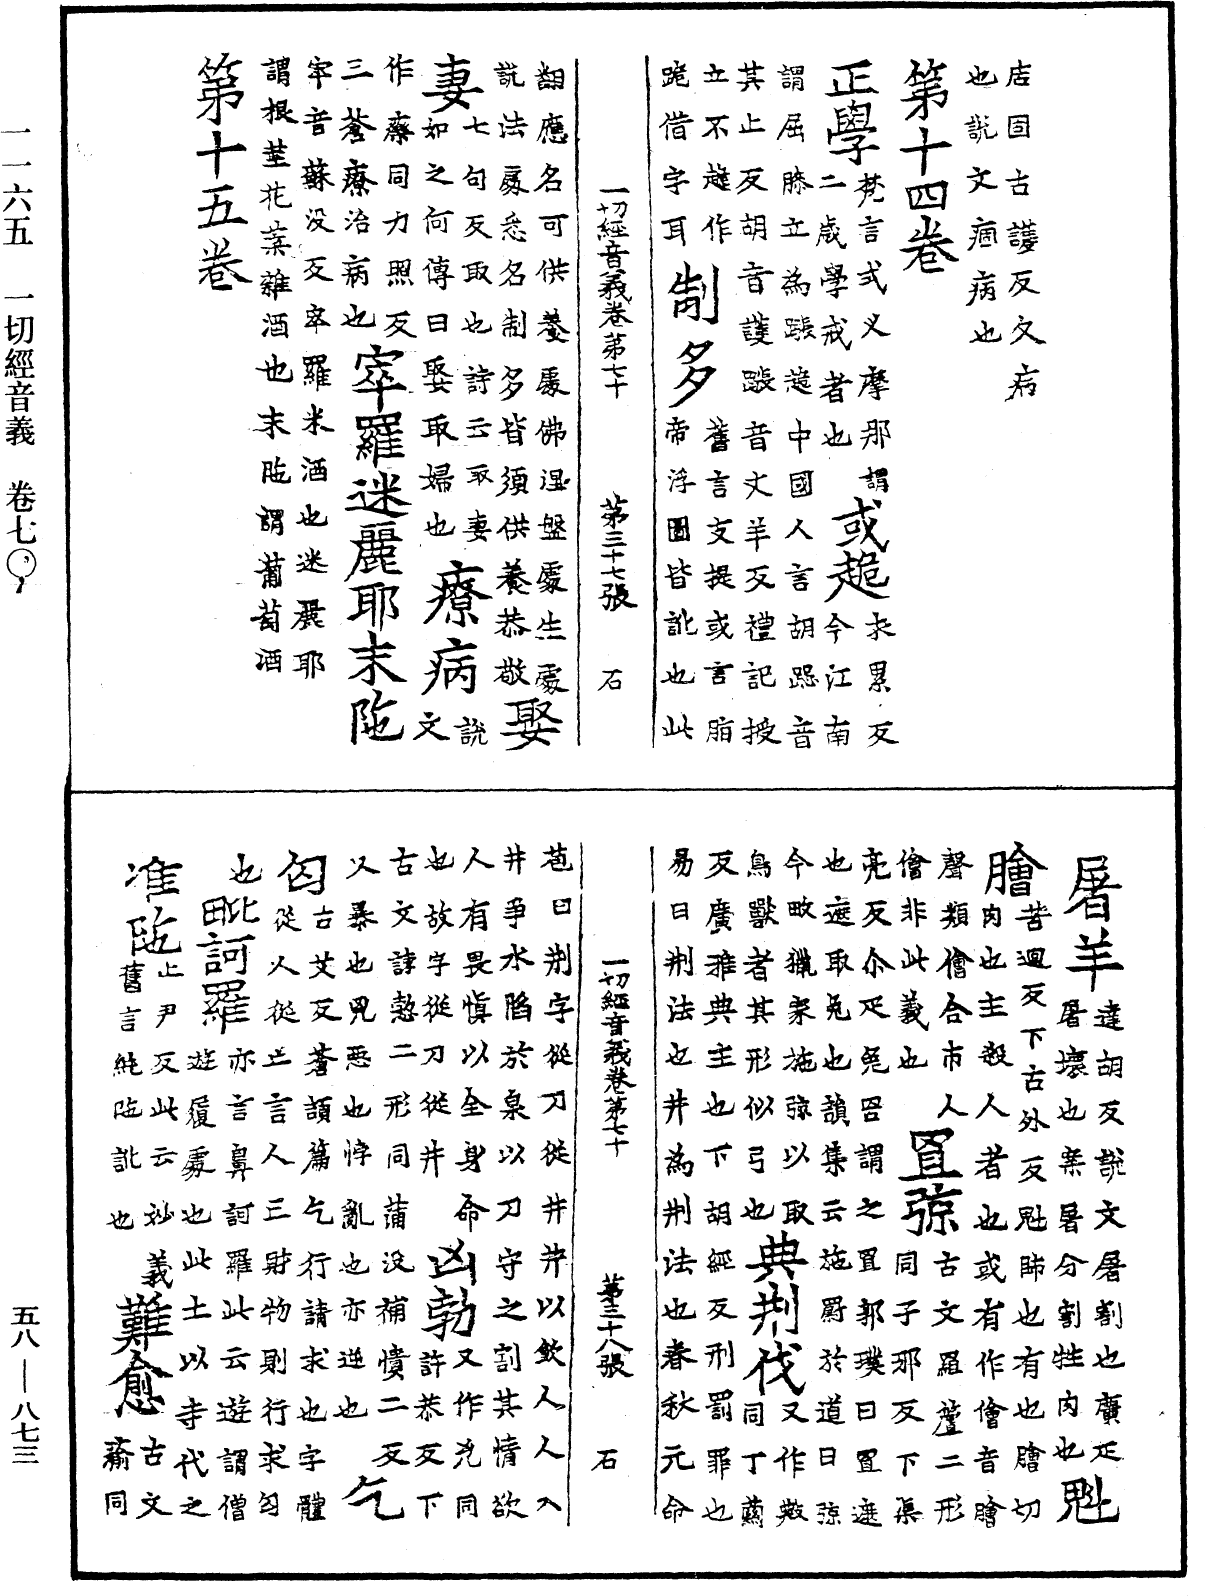 店固古護反久病
也說文痼病也
第十四卷
正學梵言式叉摩那謂
二歲學戒者也
或跪求累反
今江南
謂屈膝立為跽跪中國人言胡跽音
其止反胡音護跽音丈羊反禮記授
立不跪作
跪借字耳
制多舊言支提或言脂
帝浮圖皆訛也此
一切經音義卷第七十 第三十七張 石
翻應名可供養處佛涅盤處生處
說法處悉名制多皆須供養恭敬
娶
妻七句反取也詩云取妻
如之何傳曰娶取婦也
療病說
文
作㿇同力照反
三蒼療治病也
窣羅迷麗耶末陁
窣音蘇没反窣羅米酒也迷麗耶
謂根莖花葉雜酒也末陁謂葡萄酒
第十五卷
屠羊達胡反說文屠割也廣疋
屠壞也案屠分割牲肉也
魁
膾苦迴反下古外反魁師也有也膾切
肉也主殺人者也或有作儈音膾
聲類儈合市人
儈非此義也
罝弶古文羅𦌵二形
同子邪反下渠
亮反尒疋兔罟謂之罝郭璞曰罝遮
也遮取兔也韻集云施罥於道曰弶
今畋獵家施弶以取
鳥獸者其形似弓也
典刑伐又作敟
同丁繭
反廣雅典主也下胡經反刑罰罪也
易曰刑法也井為刑法也春秋元命
一切經音義卷第七十 第三十八張 石
苞曰刑字從刀從井井以飲人人入
井爭水陷於泉以刀守之割其情欲
人有畏慎以全身命
也故字從刀從井
凶勃又作兇同
許恭反下
古文誖愂二形同蒲没補憒二反
以暴也兇惡也悖亂也亦逆也
乞
匄古艾反蒼頡篇乞行請求也字體
從人從亡言人三財物則行求匄
也
毗訶羅亦言鼻訶羅此云遊謂僧
遊履處也此土以寺代之
准陁止尹反此云妙義
舊言純陁訛也
難愈古文
𤻞同
一一六五 一切經音義 卷七〇
五八—八七三